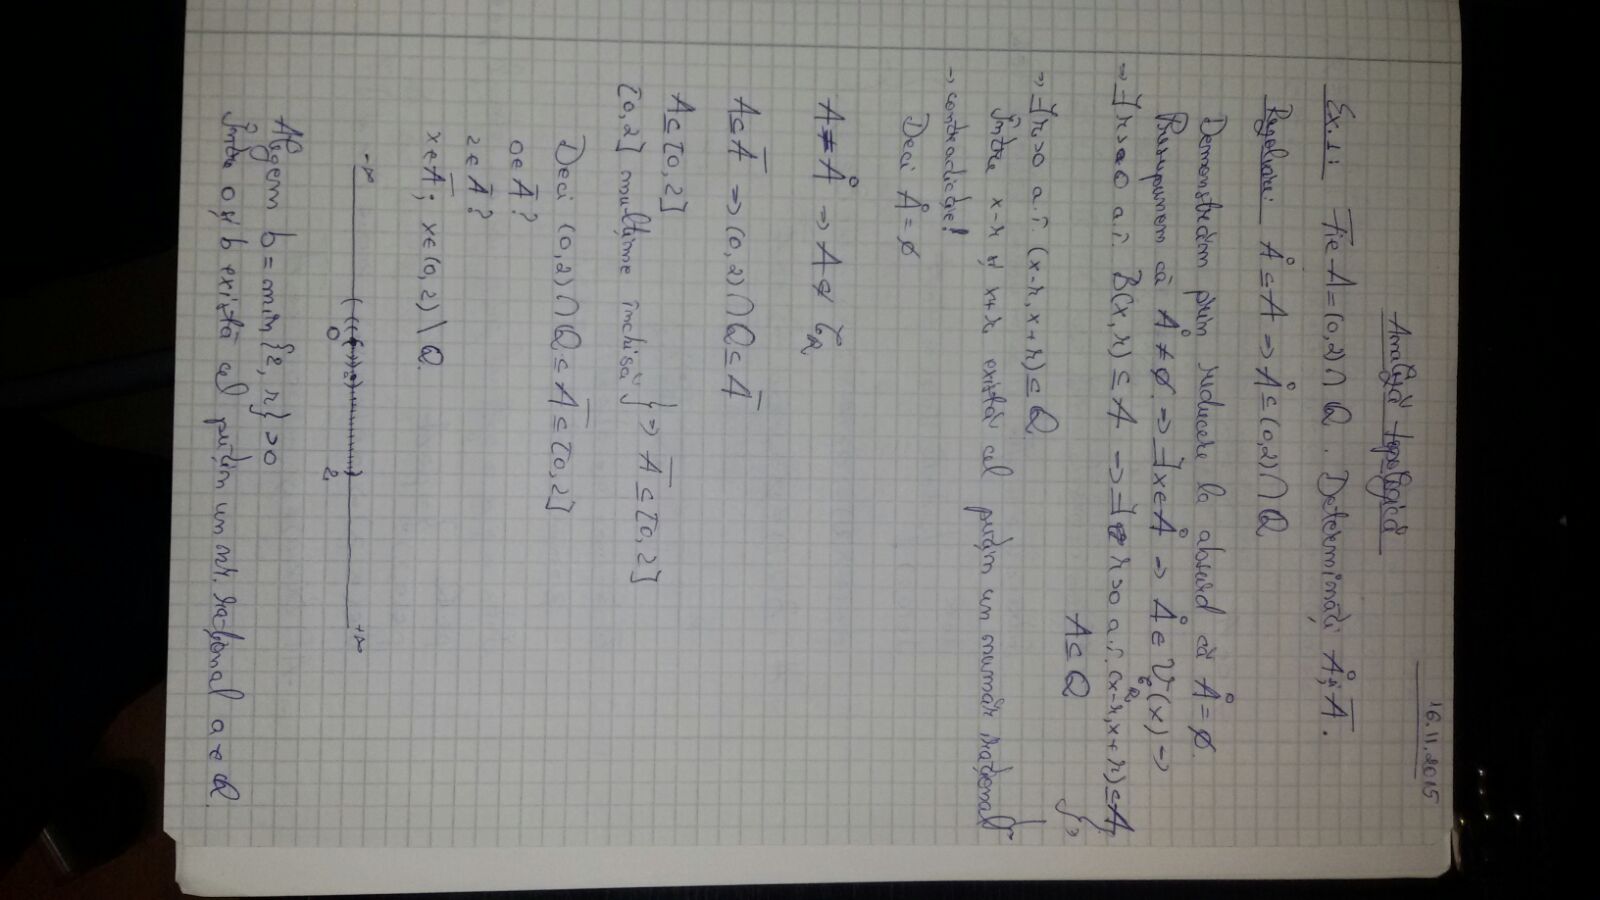 16.11.2015
Analiză topologică
Ex.1: Fie A=(0,2)∩Q. Determinați Å, Ā.
Rezolvare: Å⊆A ⇒ Å⊆(0,2)∩Q
Demonstrăm prin reducere la absurd că Å=∅.
Presupunem că Å≠∅ ⇒ ∃x∈Å ⇒ Å∈V(x) ⇒
⇒ ∃r>0 a.î. B(x,r)⊆A ⇒ ∃ r>0 a.î. (x-r,x+r)⊆A,
A⊆Q } ⇒
⇒ ∃r>0 a.î. (x-r,x+r)⊆Q
Între x-r și x+r există cel puțin un număr rațional
→ contradicție!
Deci Å=∅
A≠Å ⇒ A∉
A⊆Ā ⇒ (0,2)∩Q⊆Ā
A⊆[0,2]
[0,2] mulțime închisă } ⇒ Ā⊆[0,2]
Deci (0,2)∩Q⊆Ā⊆[0,2]
0∈Ā?
2∈Ā?
x∈Ā; x∈(0,2)\Q
-∞ 0 2 +∞
Alegem b=min{2,r}>0
Între 0 și b există cel puțin un nr. rațional a∈Q.